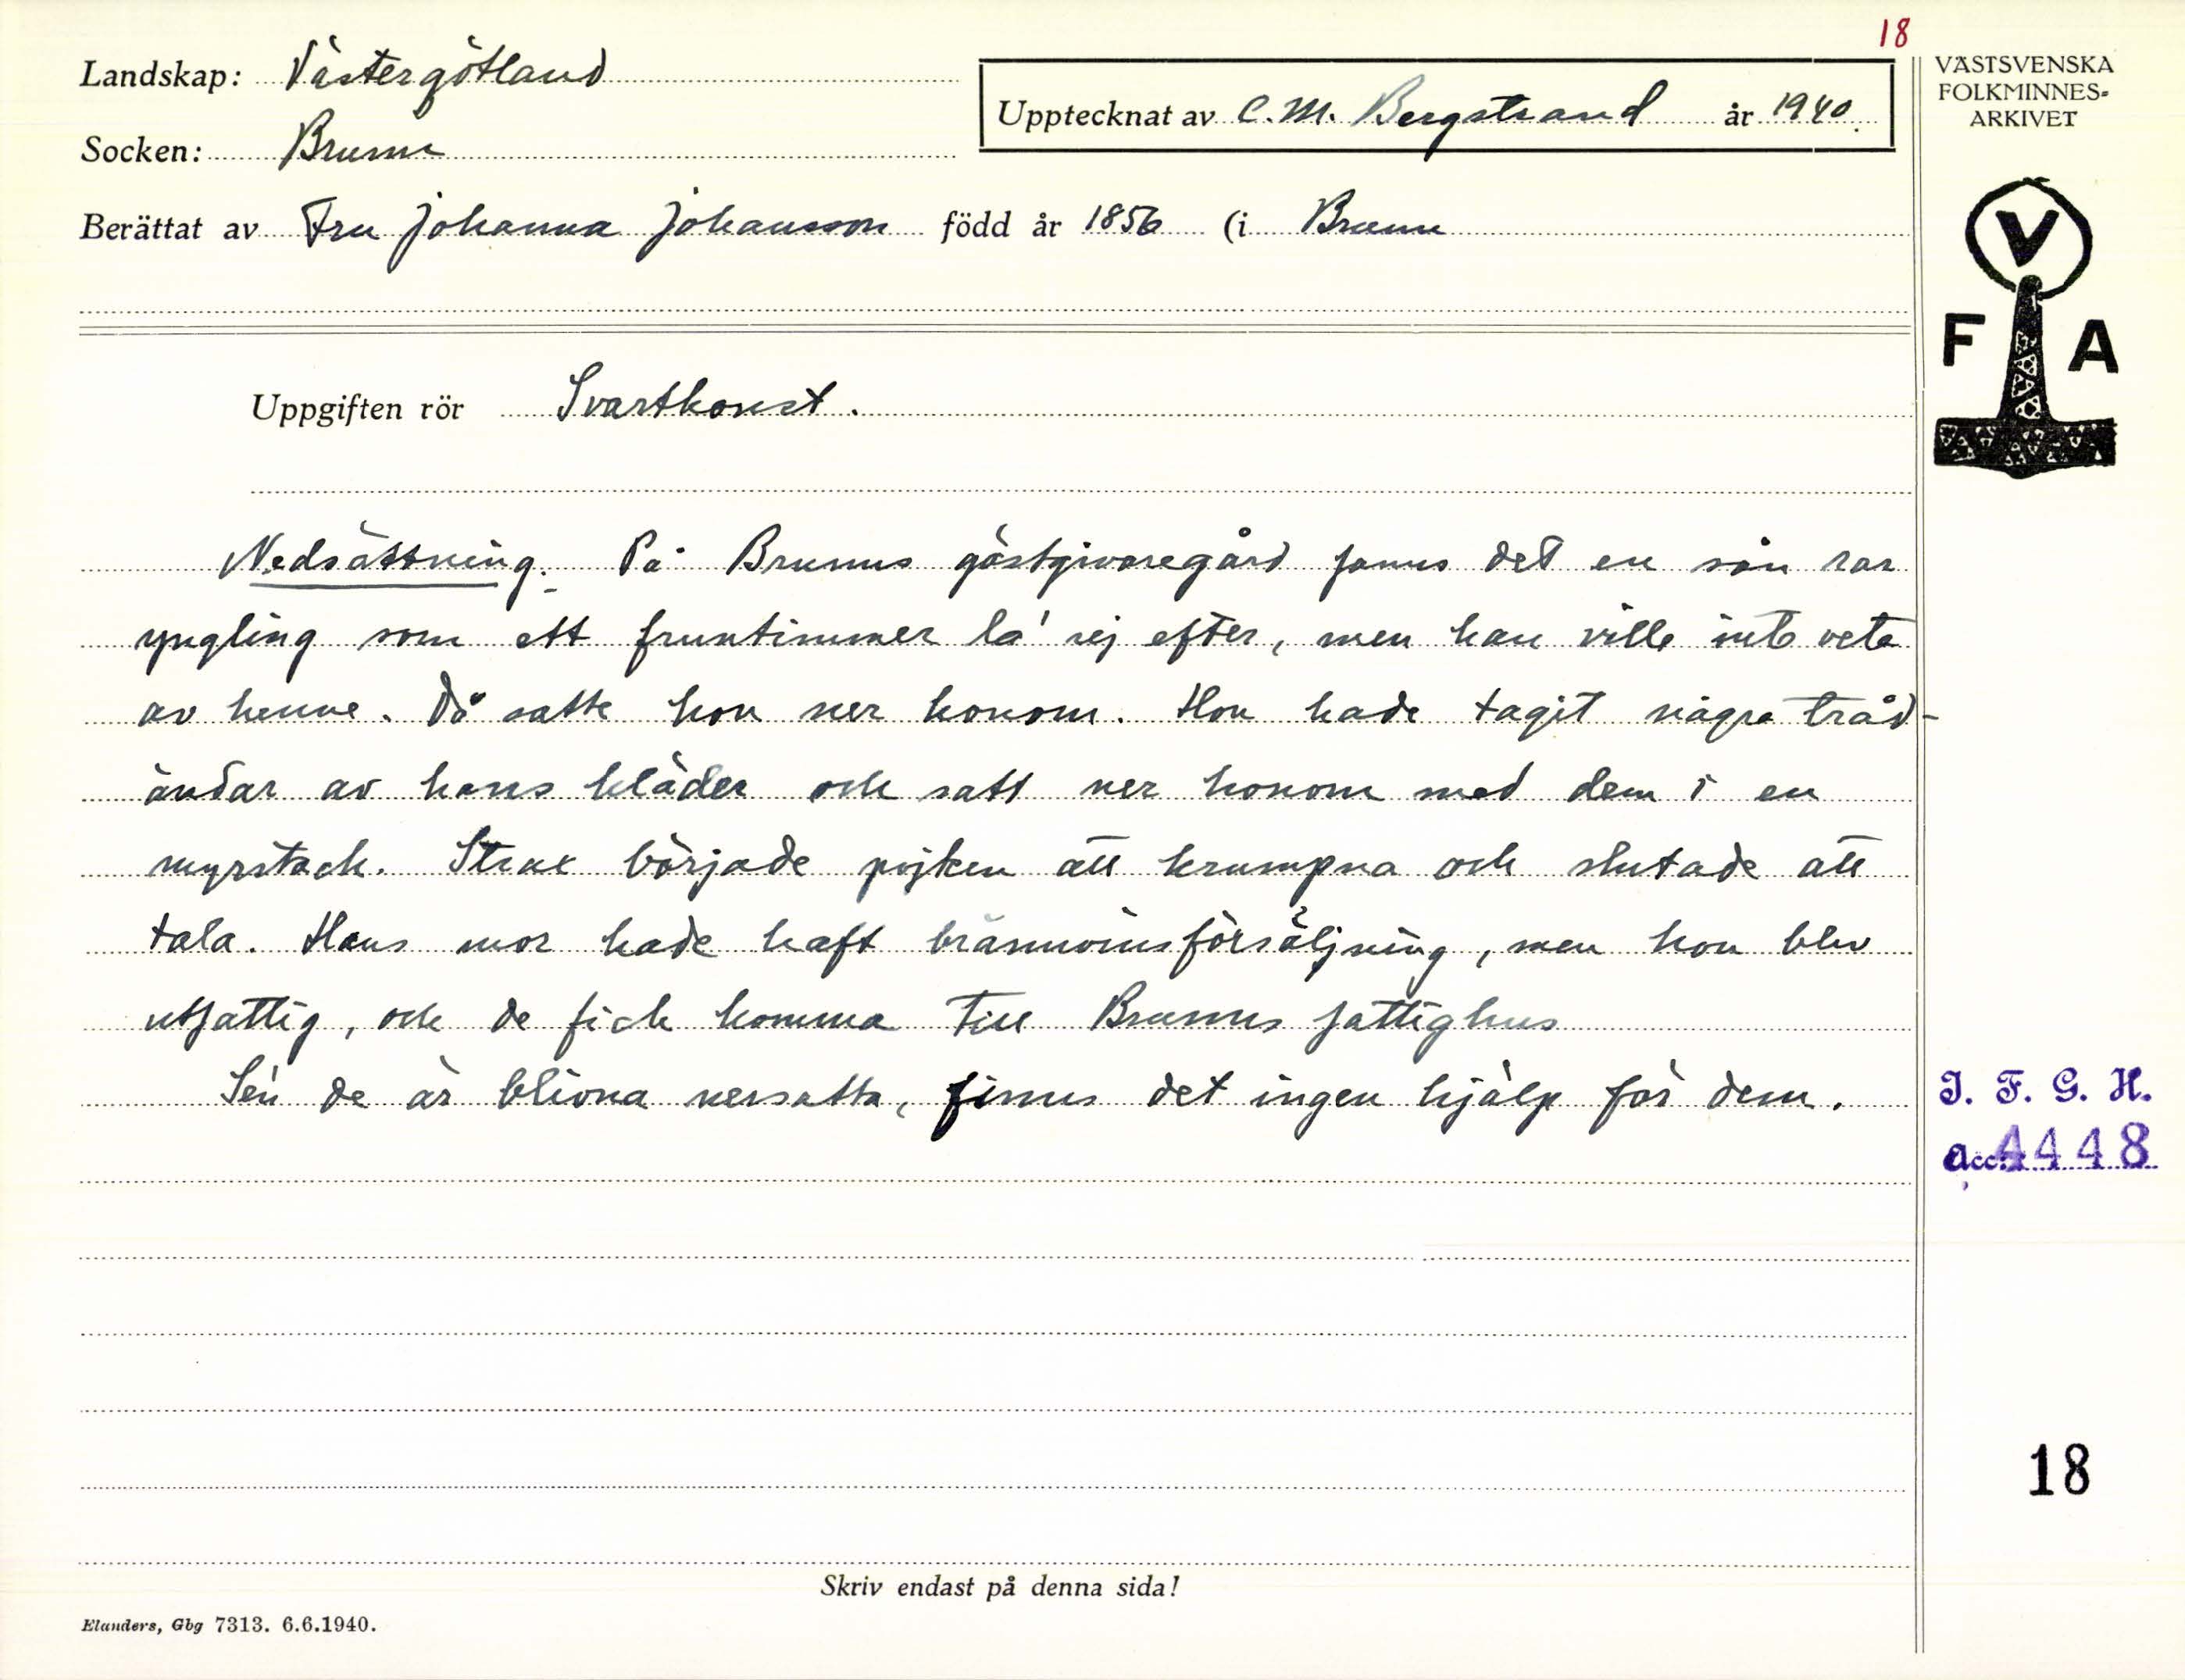 18
Landskap: Västergötland
Socken: Brunn
Upptecknat av C. M. Bergstrand år 1940.
Berättat av Fru Johanna Johansson född år 1856 (i Brunn
VÄSTSVENSKA
FOLKMINNES=
ARKIVET
V
F A
Uppgiften rör Svartkonst.
Nedsättning. På Brunns gästgivaregård fanns det en sån rar
yngling som ett fruntimmer la' sej efter, men han ville inte veta
av henne. Då satte hon ner honom. Hon hade tagit några tråd-
ändar av hans kläder och satt ner honom med dem i en
myrstack. Strax började pojken att krumpna och slutade att
tala. Hans mor hade haft brännvinsförsäljning, men hon blev
utfattig, och de fick komma till Brunns fattighus
Sén de är blivna nersatta, finns det ingen hjälp för dem.
I. F. G. H.
Acc: 4448
18
Skriv endast på denna sida!
Elanders, Gbg 7313. 6.6.1940.